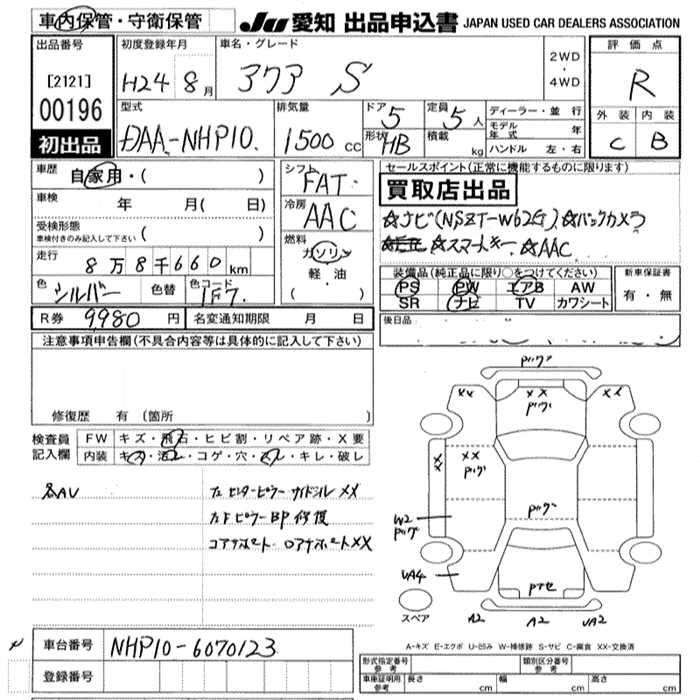 車内保管・守衛保管
JU 愛知 出品申込書 JAPAN USED CAR DEALERS ASSOCIATION
出品番号
[2121]
00196
初出品
初度登録年月
H24 8月
車名・グレード
アクア S
2WD
・
4WD
評価点
R
外装 内装
C B
型式
DAA-NHP10
排気量
1500 CC
ドア 5
形状 HB
定員 5人
積載 kg
ディーラー・並行
モデル年式 年
ハンドル 左・右
車歴 自家用・( )
車検 年 月( 日)
受検形態
車検付きのみ記入して下さい ( )
走行 8万8千660km
色 シルバー 色替 色コード 1F7
シフト
FAT
冷房
AAC
燃料
ガソリン
軽・油
( )
セールスポイント(正常に機能するものに限ります)
買取店出品
☆ナビ(NSZT-W62G) ☆バックカメラ
☆スマートキー ☆AAC
装備品(純正品に限り○をつけてください)
PS PW エアB AW
SR ナビ TV カワシート
新車保証書
有・無
R券 9980円 名変通知期限 月 日
後日品
注意事項申告欄(不具合内容等は具体的に記入して下さい)
修復歴 有 (箇所 )
検査員記入欄
FW キズ・飛石・ヒビ割・リペア跡・X要
内装 キズ・汚レ・コゲ・穴・スレ・キレ・破レ
左センターピラー サイドシル XX
左Fピラー BP修復
コアサポート・ロアサポートXX
Pッグ
XX
XX
Pッグ
XX
XX
XX
Pッグ
Pッグ
W2
Pッグ
UA4
Pアセ
スペア
A2
A2
UA2
A-キズ E-エクボ U-凹み W-補修跡 S-サビ C-腐食 XX-交換済
車台番号 NHP10-6070123
登録番号
型式指定番号
参考
類別区分番号
参考
車庫証明用
参考
長さ cm 幅 cm 高さ cm